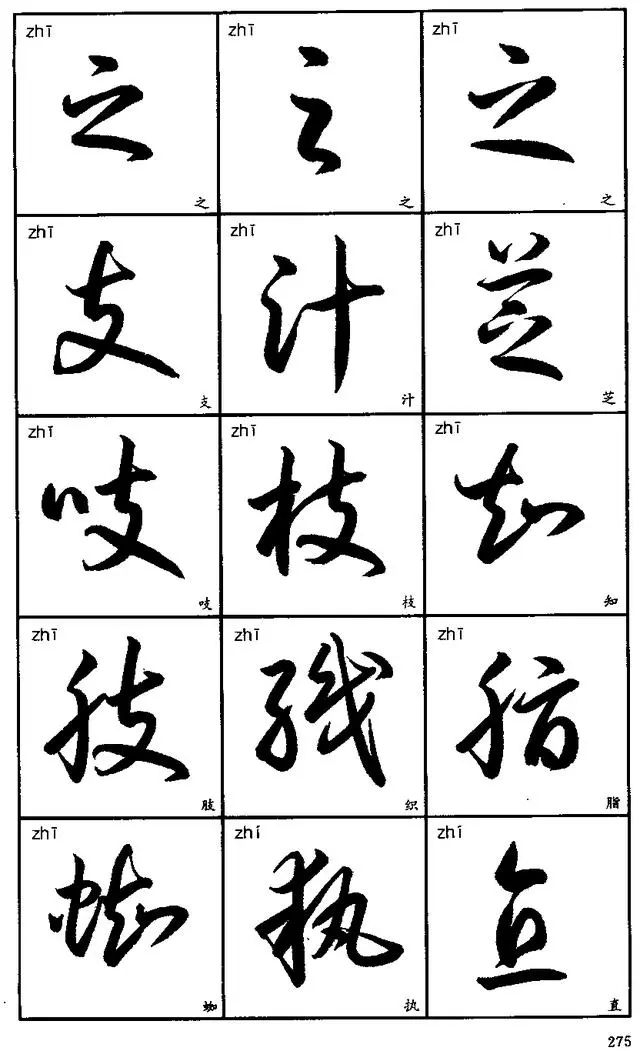 zhī zhī zhī
之 之 之
之 之 之
zhī zhī zhī
支 汁 芝
支 汁 芝
zhī zhī zhī
吱 枝 知
吱 枝 知
zhī zhī zhī
肢 织 脂
肢 织 脂
zhī zhí zhí
蜘 执 直
蜘 执 直
275